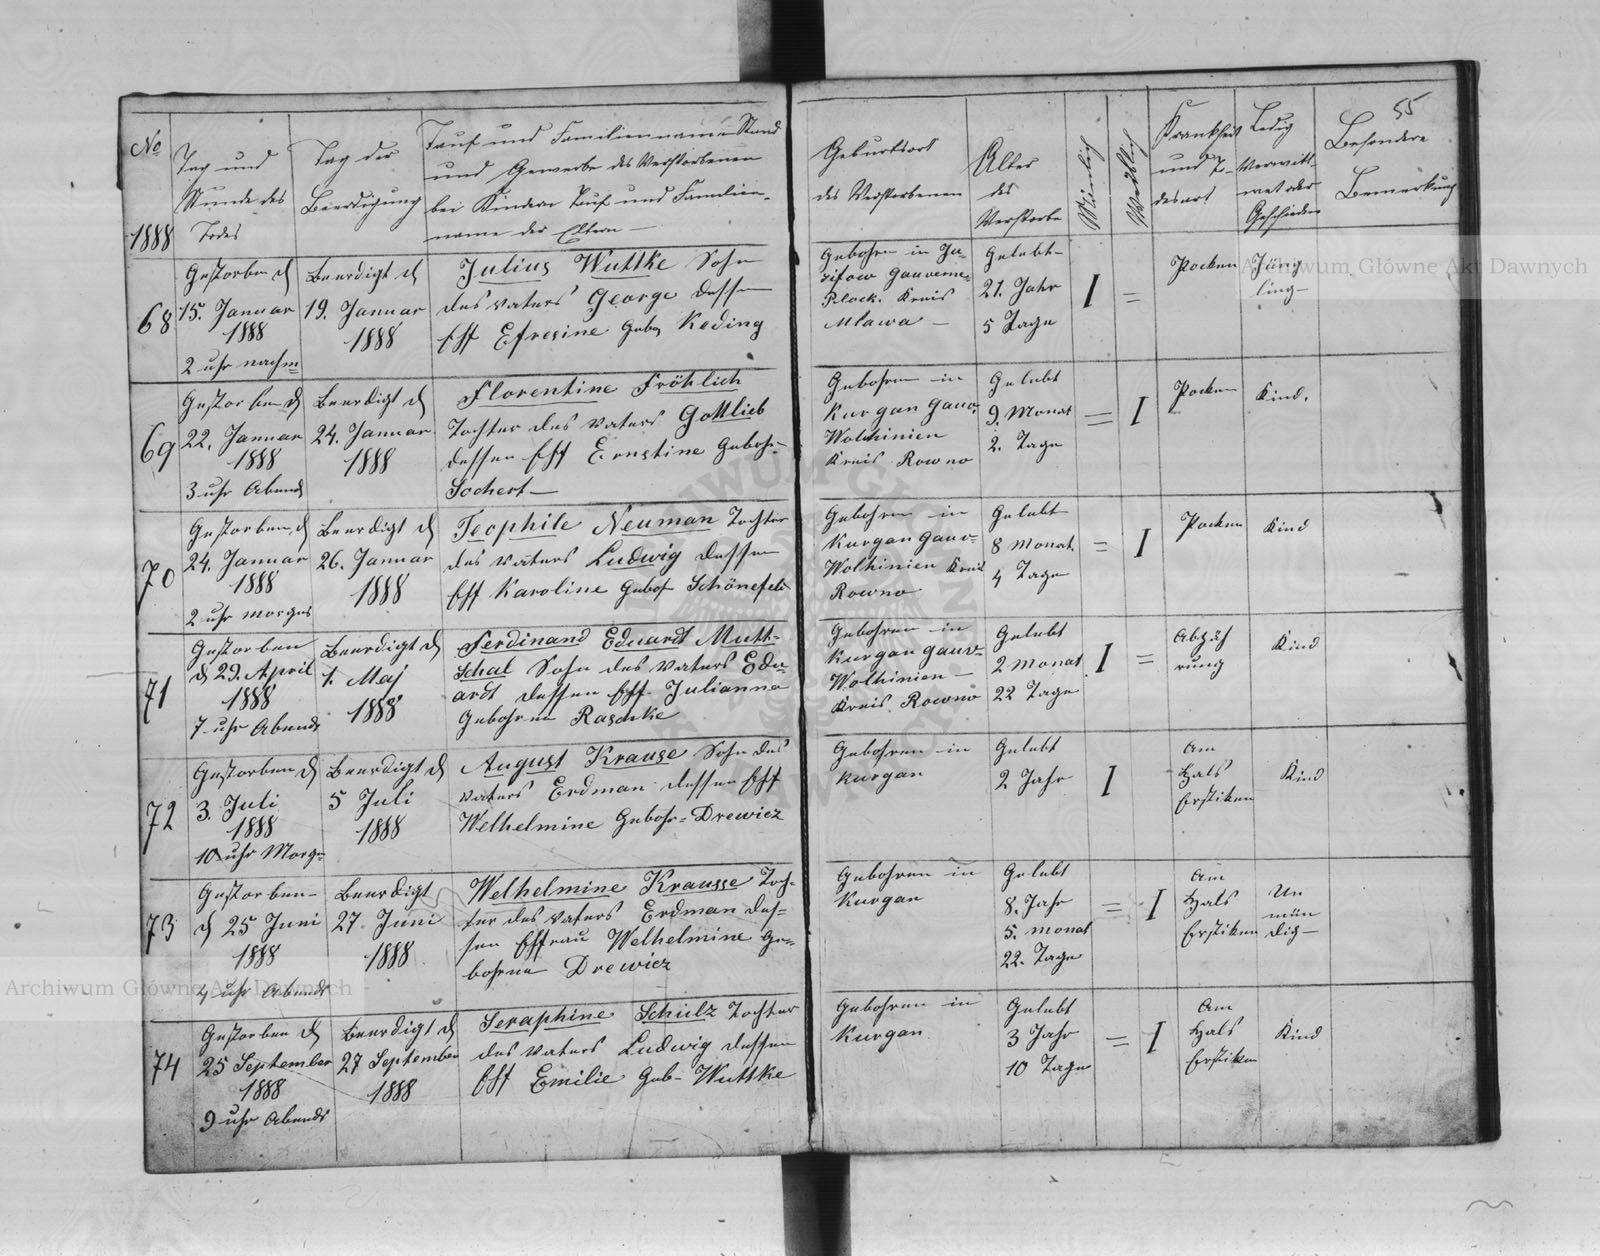 55
No
1888
Tag und
Stunde des
Todes
Tag der
Beerdigung
Tauf und Familienname Stand
und Gewerbe des Verstorbenen
bei Kindern Tauf und Familien-
name der Eltern —
Geburtsort
des Verstorbenen
Alter
des
Verstorbe
Mänlich
Weiblich
Krankheit
und To-
desart
Ledig
Verwitt-
wet oder
Geschieden
Besondere
Bemerkung
68
Gestorben d
15. Januar
1888
2 uhr nachm
Beerdigt d
19. Januar
1888
Julius Wuttke Sohn
des vaters George dessen
Eff Efresine Gebo Keding
Gebohren in Ju-
zifow Gouverne-
Plock. Kreis
Mlawa —
Gelebt-
21. Jahr
5 Tage
I
=
Pocken
Jüng-
ling-
69
Gestorben d
22. Januar
1888
3 uhr Abends
Beerdigt d
24. Januar
1888
Florentine Fröhlich
Tochter des vaters Gottlieb
dessen Eff Ernstine Geboh-
Sochert —
Gebohren in
Kurgan Gouv.
Wolhinien
Kreis Rowno
Gelebt
9. Monat
2. Tage
=
I
Pocken
Kind.
70
Gestorben d
24. Januar
1888
2 uhr morgns
Beerdigt d
26. Januar
1888
Teophile Neuman Tochter
des vaters Ludwig dessen
Eff Karoline Geboh Schönefeld
Gebohren in
Kurgan Gouv-
Wolhinien Kreis
Rowno
Gelebt
8 Monat.
4 Tage
=
I
Pocken
Kind
71
Gestorben
d 29. April
1888
7 uhr Abends
Beerdigt d
1. Maj
1888
Ferdinand Eduardt Mutt-
schal Sohn des vaters Edu-
ardt dessen Eff- Julianna
Gebohrene Raschke
Gebohren in
Kurgan Gouv-
Wolhinien —
Kreis Rowno
Gelebt
2 Monat
22 Tage
I
=
Abzäh
rung
Kind
72
Gestorben d
3. Juli
1888
10 uhr Morgn
Beerdigt d
5 Juli
1888
August Krause Sohn des
vaters Erdman dessen Eff
Welhelmine Gebohr= Drewicz
Gebohren in
Kurgan
Gelebt
2 Jahr
I
Am
Hals
Erstiken
Kind
73
Gestorben-
d 25 Juni
1888
4 uhr Abends
Beerdigt
27 Juni
1888
Welhelmine Krausse Toch-
ter des vaters Erdman des-
sen Effrau Welhelmine Ge-
bohrne Drewicz
Gebohren in
Kurgan
Gelebt
8. Jahr
5. monat
22. Tage
=
I
Am
Hals
Erstiken
Un
mün
dig-
74
Gestorben d
25 September
1888
9 uhr Abends
Beerdigt d
27 September
1888
Seraphine Schulz Tochter
des vaters Ludwig dessen
Eff Emilie Geb- Wuttke
Gebohren in
Kurgan
Gelebt
3 Jahr
10 Tage
=
I
Am
Hals
Erstiken
Kind
Archiwum Główne Akt Dawnych
Archiwum Główne Akt Dawnych